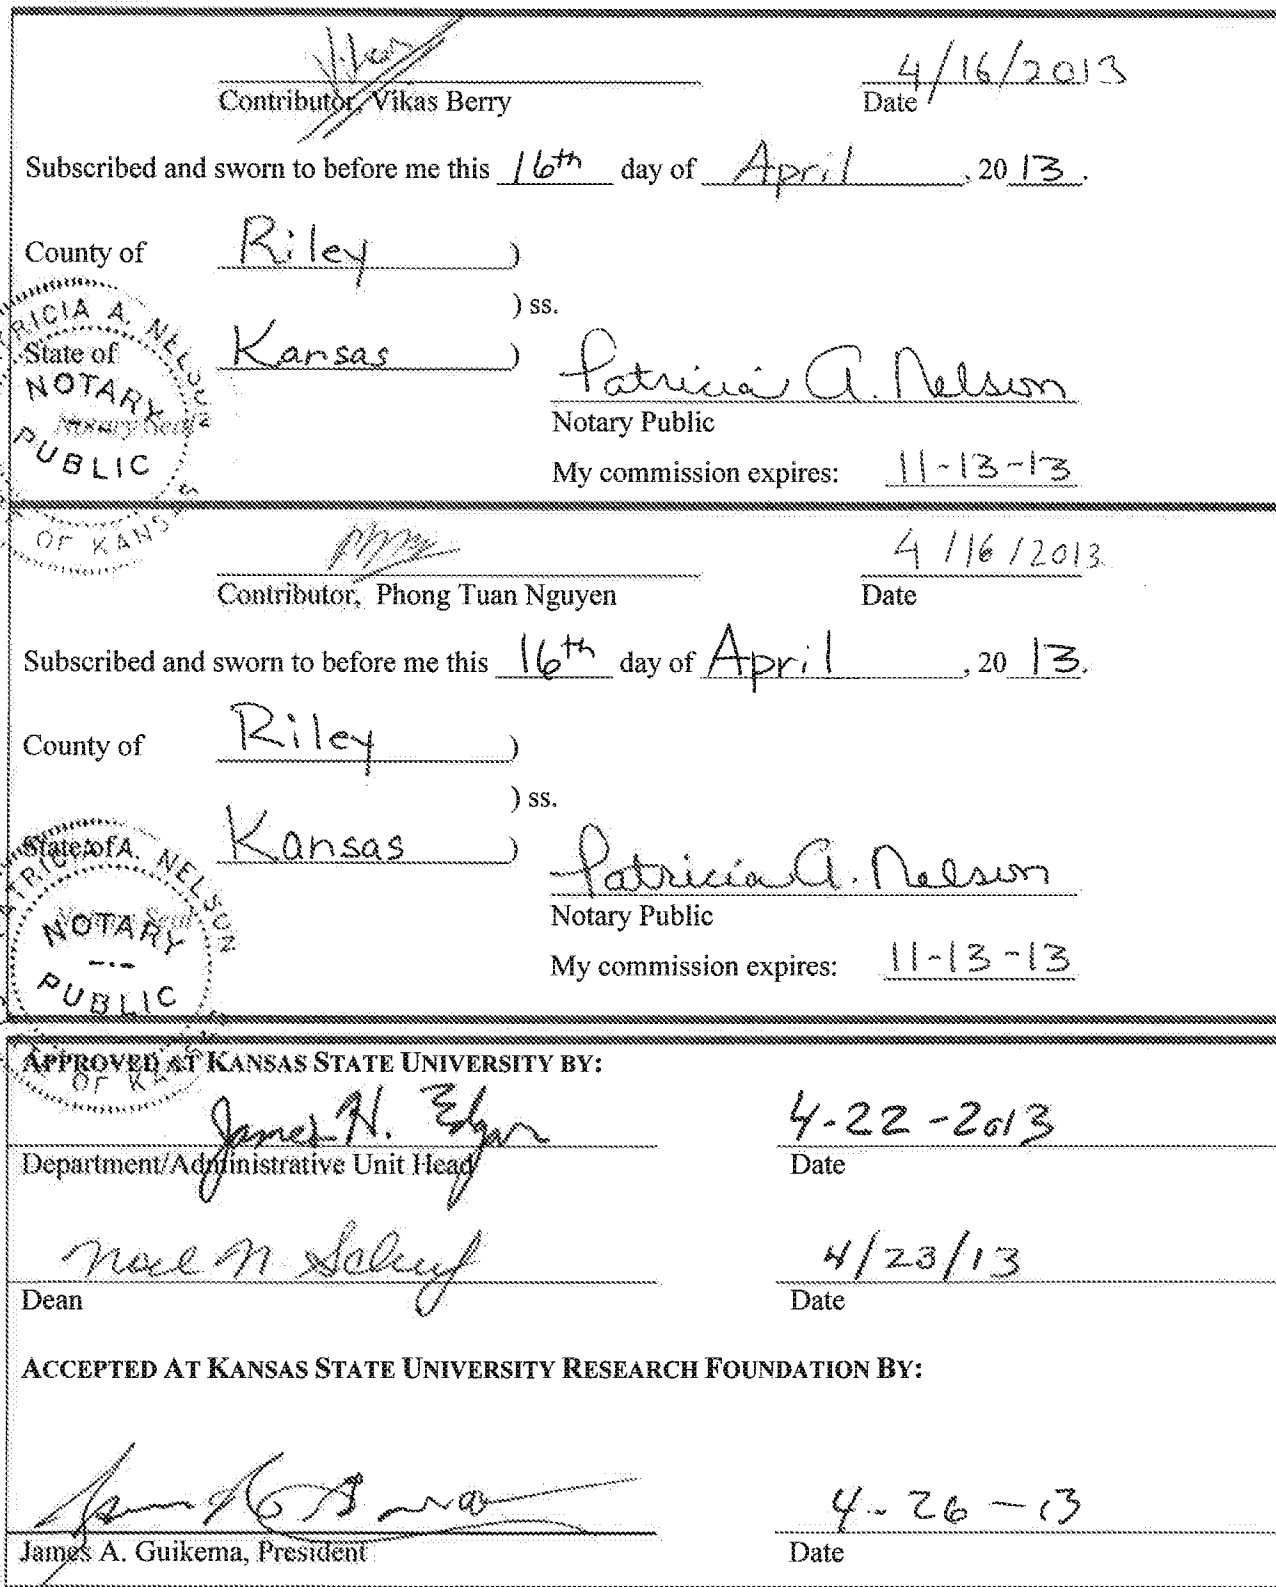 4/16/2013
Contributor, Vikas Berry Date
Subscribed and sworn to before me this 16th day of April, 20 13.
County of Riley )
) ss.
State of Kansas )
PATRICIA A. NELSON
NOTARY
PUBLIC
STATE OF KANSAS
Notary Seal
Patricia A. Nelson
Notary Public
My commission expires: 11-13-13
4/16/2013
Contributor, Phong Tuan Nguyen Date
Subscribed and sworn to before me this 16th day of April, 20 13.
County of Riley )
) ss.
State of Kansas )
PATRICIA A. NELSON
NOTARY
PUBLIC
STATE OF KANSAS
Notary Seal
Patricia A. Nelson
Notary Public
My commission expires: 11-13-13
APPROVED AT KANSAS STATE UNIVERSITY BY:
James H. Edgar 4-22-2013
Department/Administrative Unit Head Date
4/23/13
Dean Date
ACCEPTED AT KANSAS STATE UNIVERSITY RESEARCH FOUNDATION BY:
4-26-13
James A. Guikema, President Date